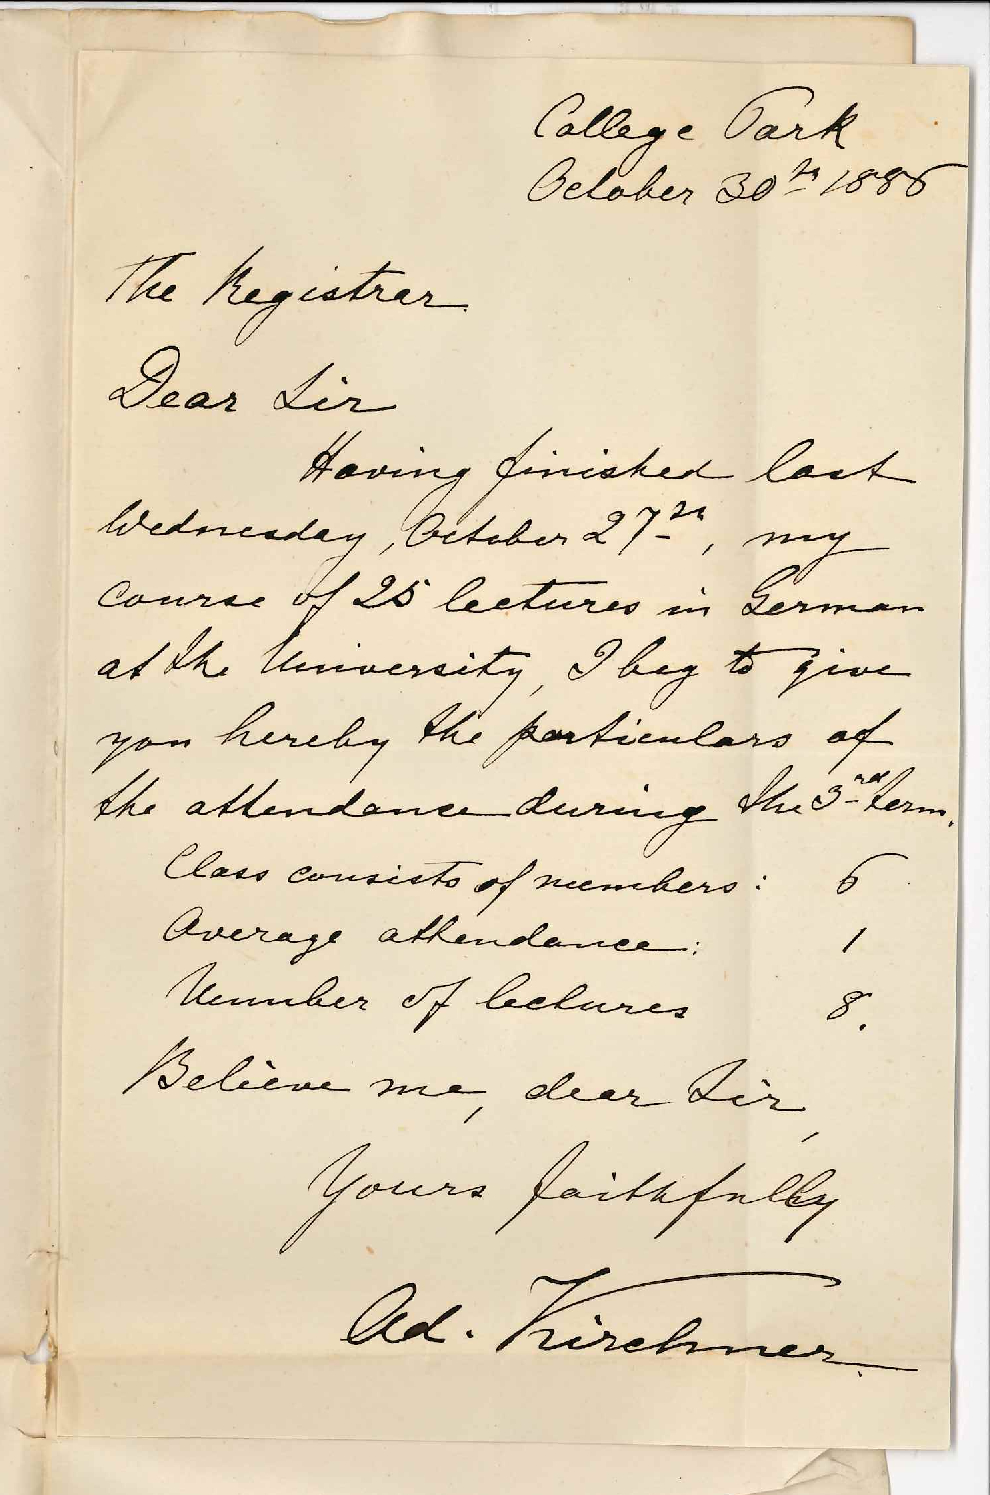 College Park
October 30th 1886
The Registrar.
Dear Sir
Having finished last
Wednesday, October 27th, my
course of 25 lectures in German
at the University, I beg to give
you hereby the particulars of
the attendance during the 3rd term.
Class consists of members: 6
Average attendance: 1
Number of lectures 8.
Believe me, dear Sir,
Yours faithfully
Ad. Kirchner.